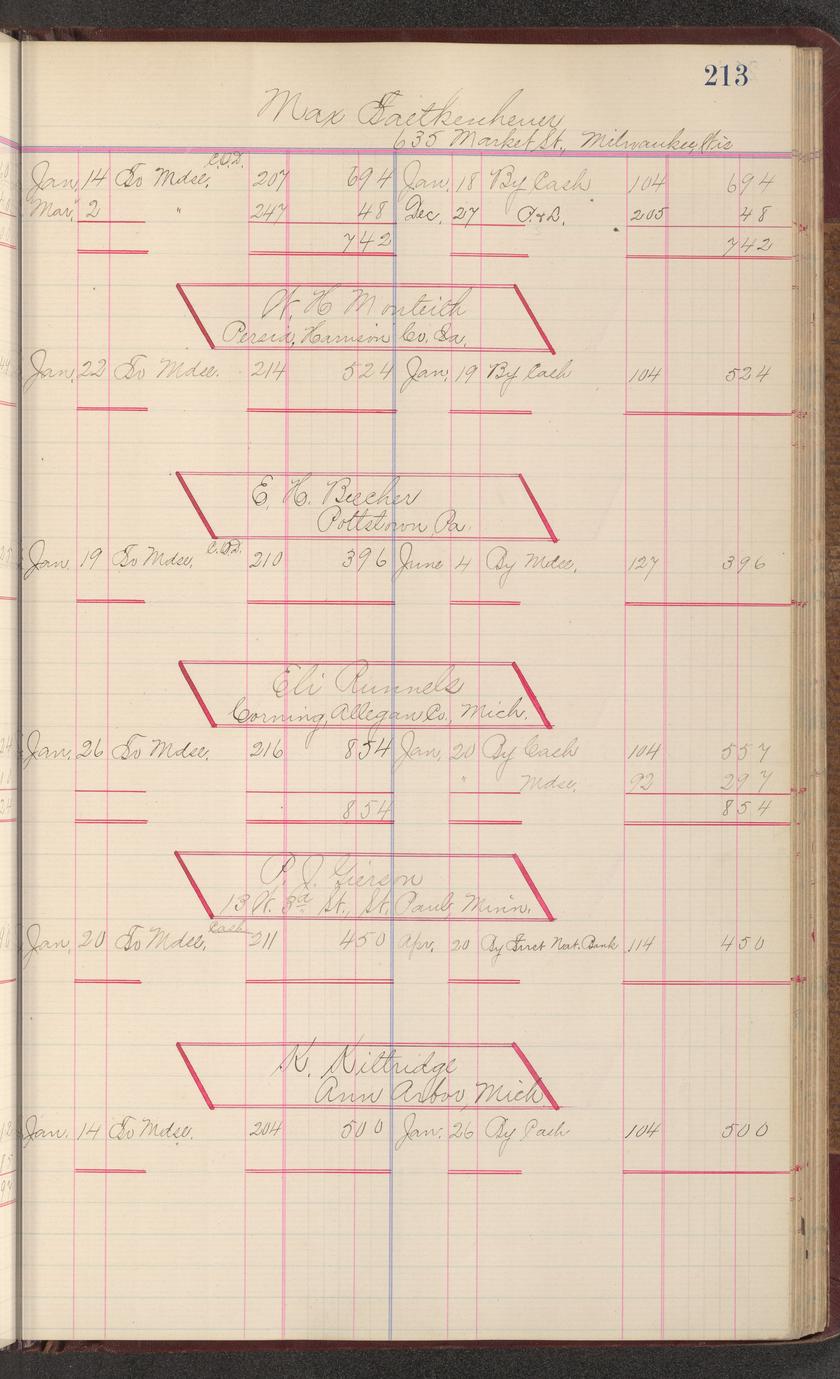 213
Max
635 Market St., Milwaukee, Wis
Jan. 14 To Mdse. C.O.D. 207 694 Jan. 18 By Cash 104 694
Mar. 2 " 247 48 Dec. 27 P&L. 205 48
742 742
W. H. Monteith
Persia, Harrison Co. Ia.
Jan. 22 To Mdse. 214 524 Jan. 19 By Cash 104 524
E. H. Beecher
Pottstown, Pa.
Jan. 19 To Mdse. C.O.D. 210 396 June 4 By Mdse. 127 396
Eli Runnels
Corning, Allegan Co., Mich.
Jan. 26 To Mdse. 216 854 Jan. 20 By Cash 104 557
" Mdse. 92 297
854 854
P. J. Gierson
13 W. 3rd St., St. Paul, Minn.
Jan. 20 To Mdse. Cash 211 450 Apr. 20 By First Nat. Bank 114 450
K. Kittridge
Ann Arbor, Mich.
Jan. 14 To Mdse. 204 500 Jan. 26 By Cash 104 500